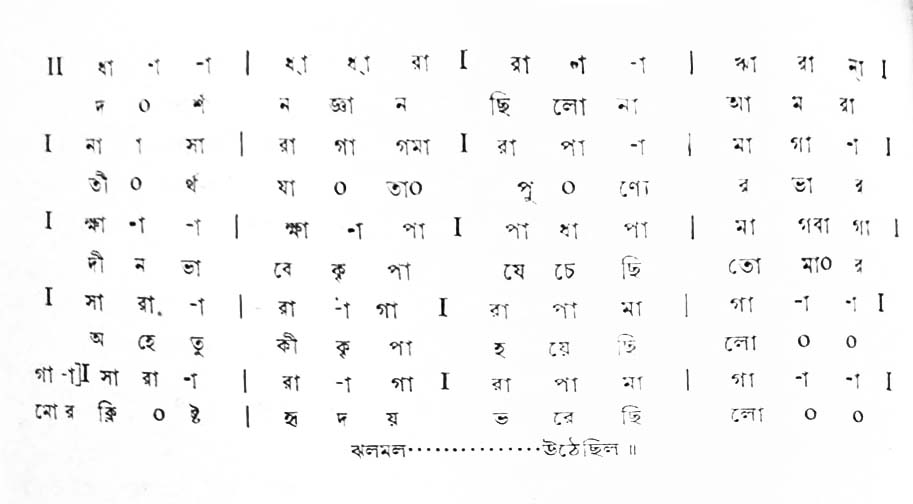 II ধা -া -া | ধ্া ধ্া রা I রা ণা -া | ঋা রা ন্ I
দ ০ র্শ ন জ্ঞা ন ছি লো না আ ম রা
I না া সা | রা গা গমা I রা পা -া | মা গা -া I
তী ০ র্থ যা ০ তা০ পু ০ ণ্যে র ভা র
I ক্ষা -া -া | ক্ষা -া পা I পা ধা পা | মা গরা গা I
দী ন ভা বে কৃ পা যে চে ছি তো মা০ র
I সা রা. -া | রা -া গা I রা পা মা | গা -া -া I
অ হে তু কী কৃ পা হ য়ে ছি লো ০ ০
গা -া]I সা রা -া | রা -া গা I রা পা মা | গা -া -া I
মো র ক্লি ০ ষ্ট | হৃ দ য় ভ রে ছি লো ০ ০
ঝলমল···············উঠেছিল ॥